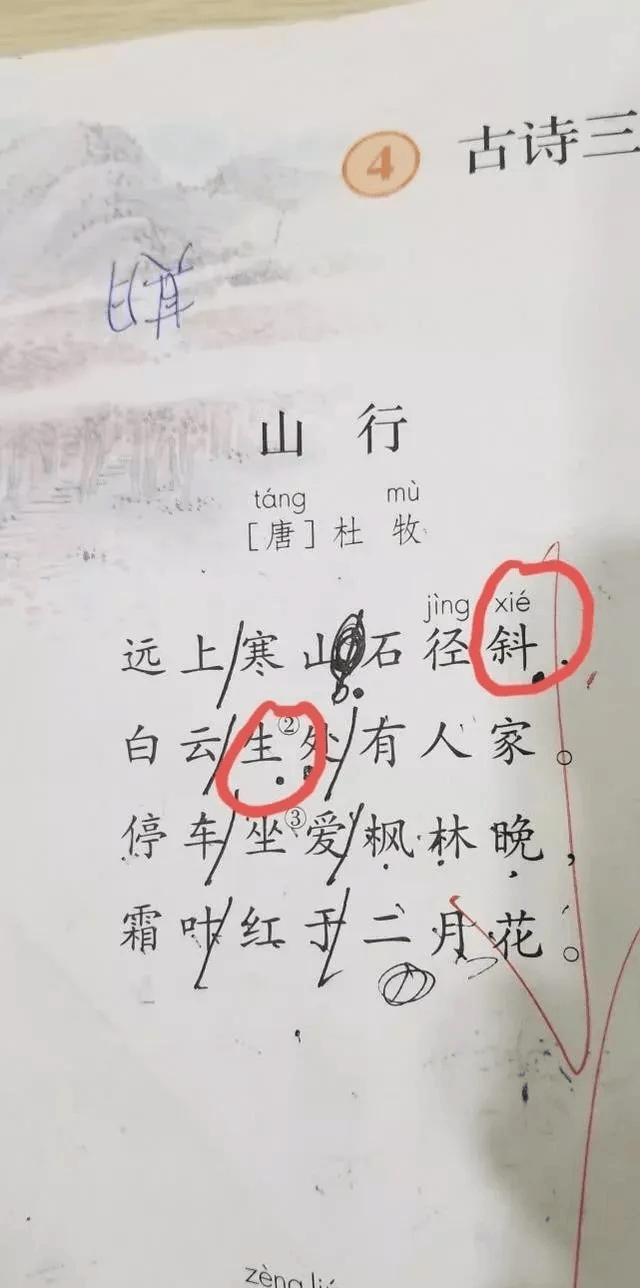 4 古诗三
山 行
táng mù
[唐]杜 牧
jìng xié
远上寒山石径斜
白云生②处有人家。
停车坐③爱枫林晚,
霜叶红于二月花。
zèng liú